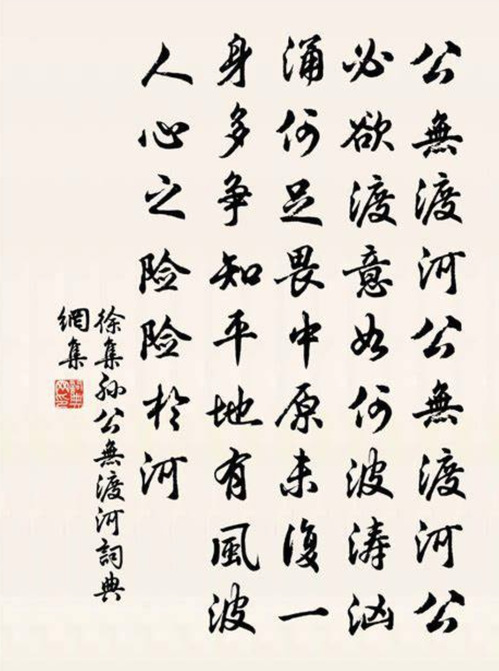 公無渡河公無渡河公
必欲渡意如何波涛汹
涌何足畏中原未復一
身多争知平地有風波
人心之险险於河
徐集孙公無渡河詞典
網集